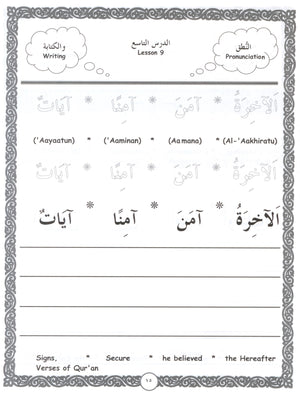 النُّطق
Pronunciation
الدرس التاسع
Lesson 9
والكتابة
Writing
اَلآخِرَةُ * آمَنَ * آمِنًا * آيَاتٌ
('Aayaatun) * ('Aaminan) * (Aamana) * (Al-'Aakhiratu)
اَلآخِرَةُ * آمَنَ * آمِنًا * آيَاتٌ
اَلآخِرَةُ * آمَنَ * آمِنًا * آيَاتٌ
Signs, * Secure * he believed * the Hereafter
Verses of Qur'an
١٥